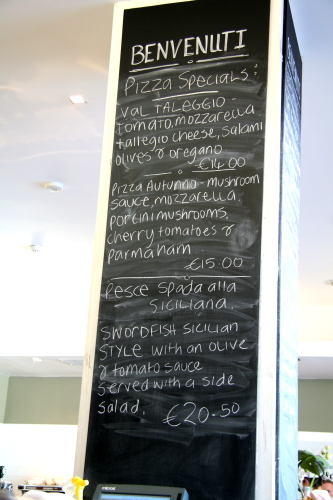 BENVENUTI
Pizza Specials:
Val TALEGGIO -
Tomato, mozzarella
tallegio cheese, salami
olives & oregano
€14.00
Pizza Autunno - mushroom
sauce, mozzarella,
porcini mushrooms,
cherry tomatoes &
parma ham
€15.00
Pesce Spada alla
Siciliana.
SWORDFISH SICILIAN
STYLE with an olive
& tomato sauce
Served with a side
Salad.
€20.50